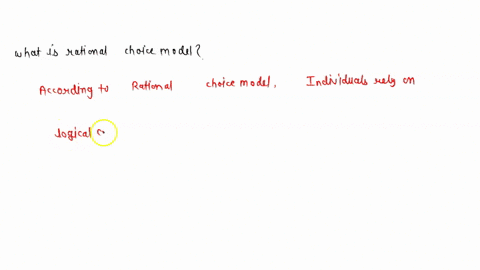 what is rational choice model?
According to Rational choice model, Individuals rely on
logical